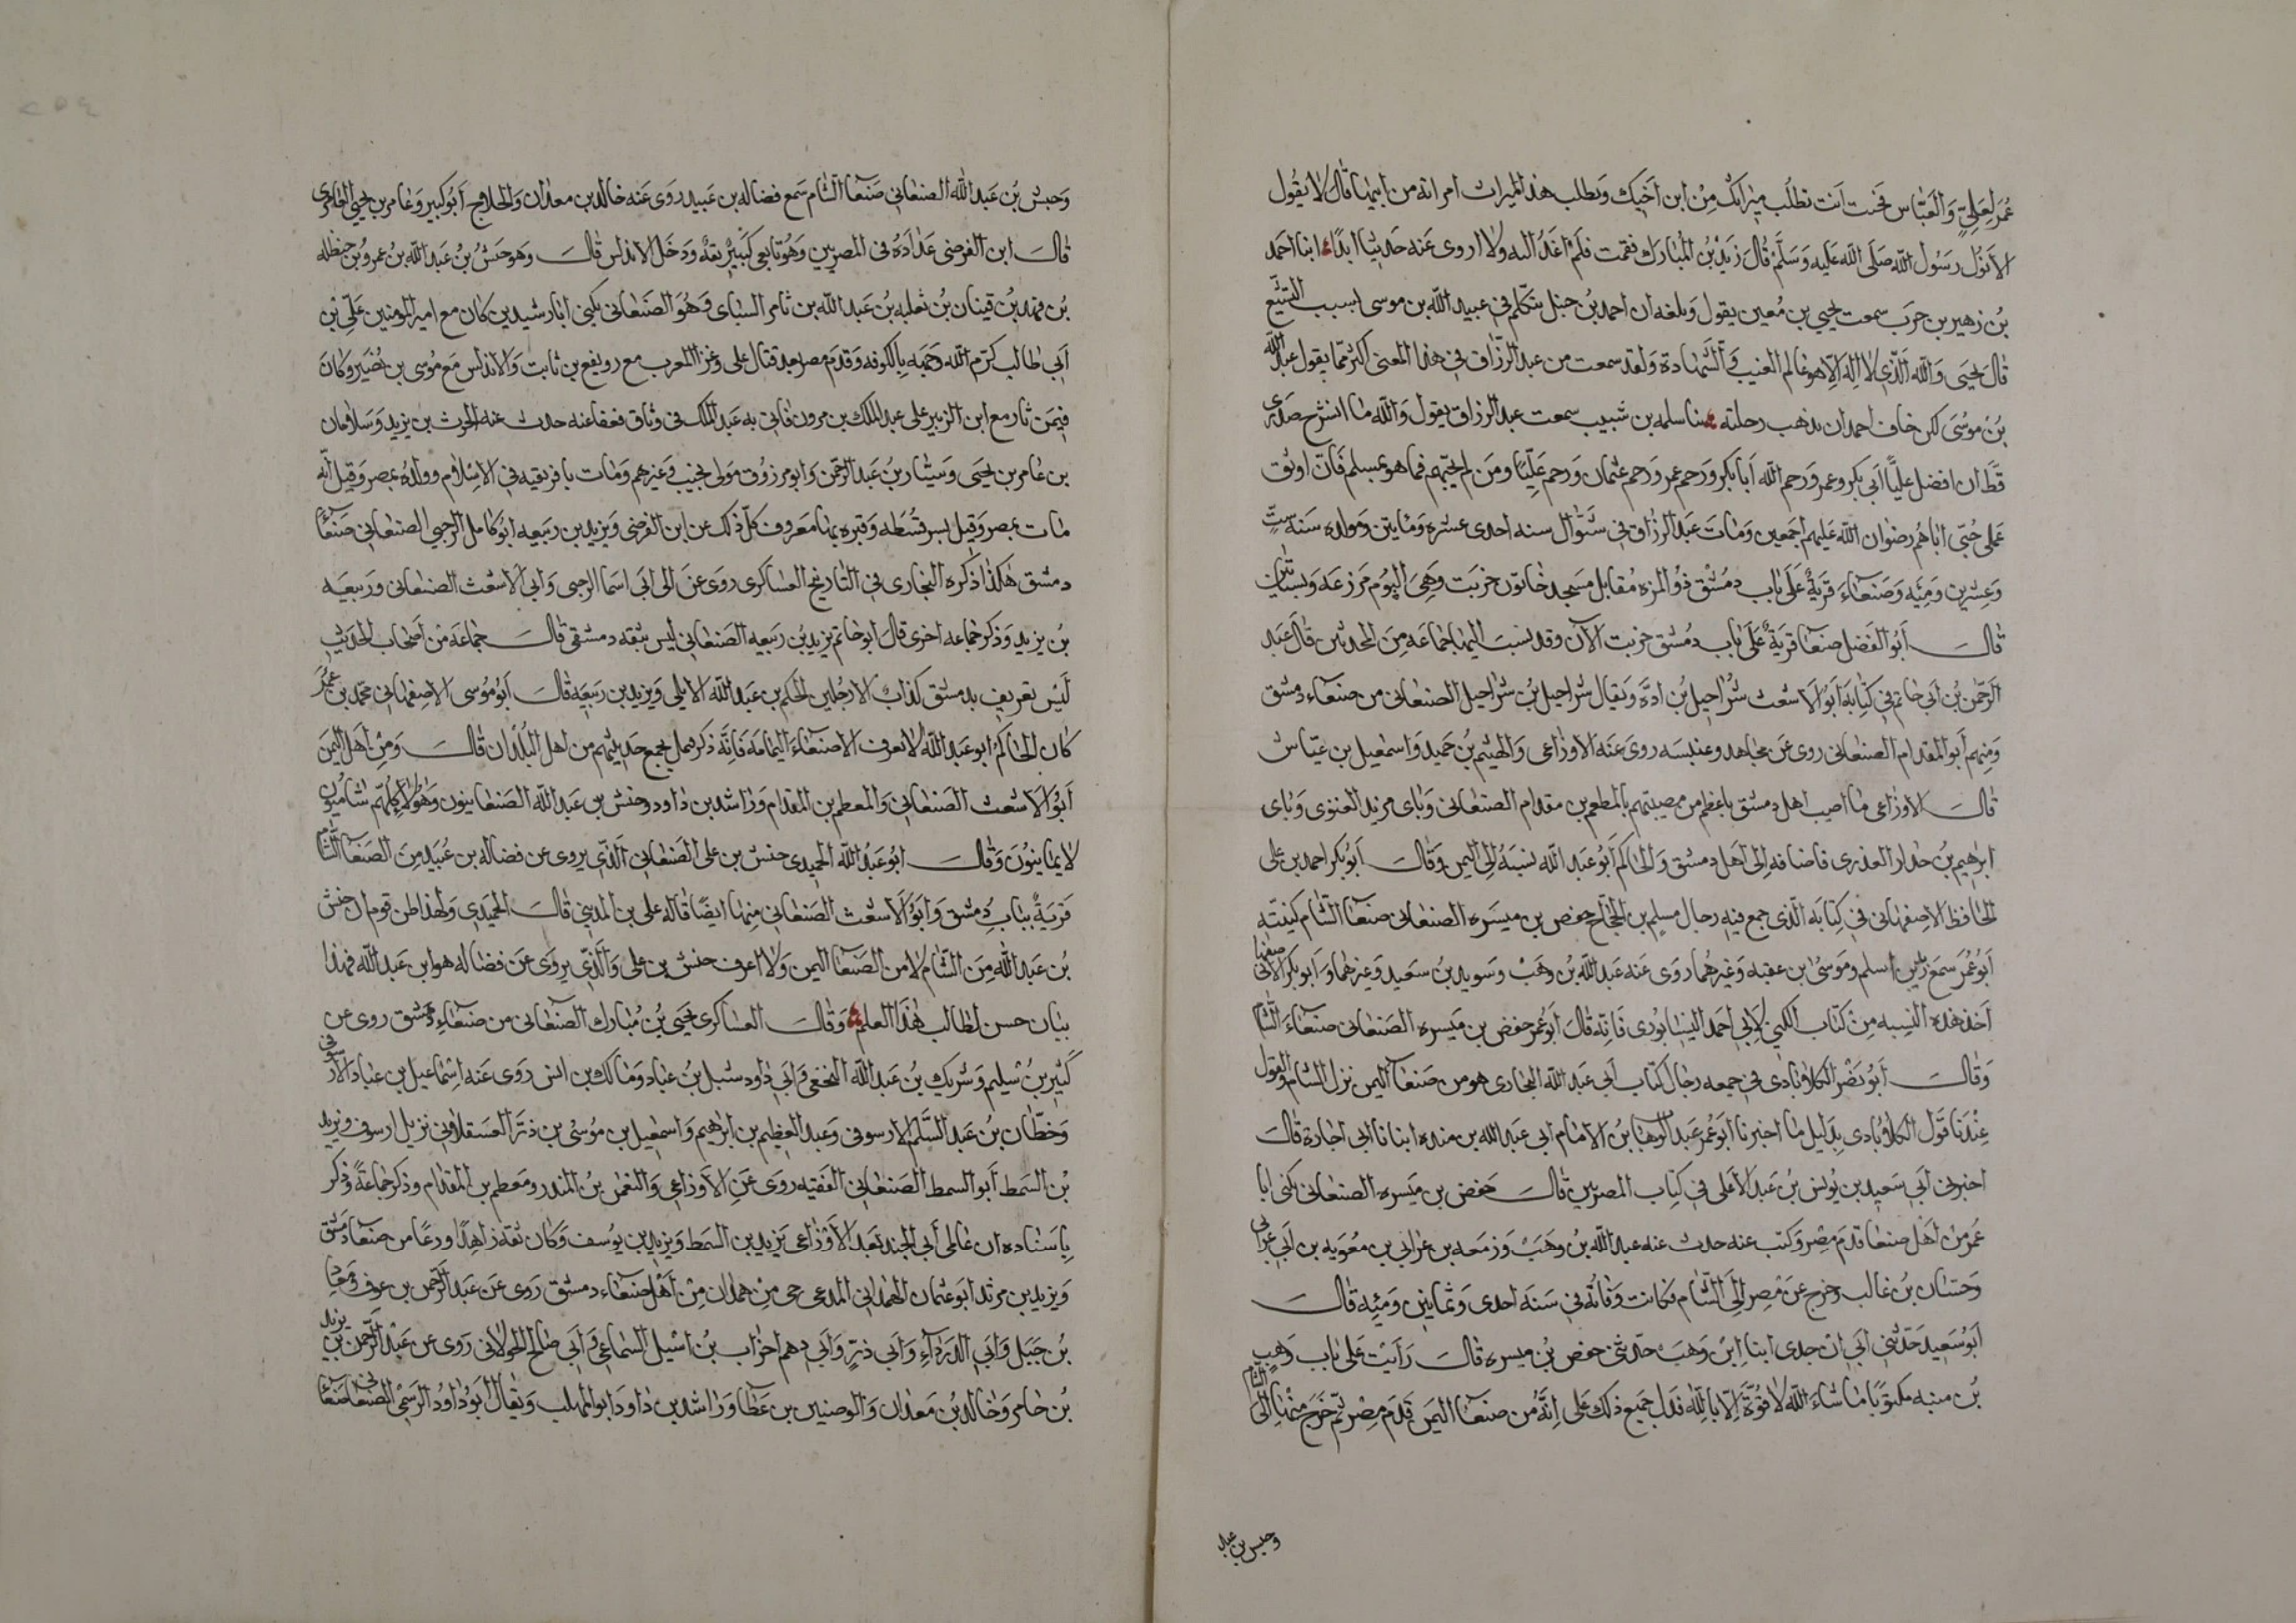 عُمَر لعَليٍّ وَالعَبّاس فجئت أنت تطلُب ميراثك مِنْ ابن أخيك ويطلب هذا الميراث امرأته من ابيها قال لا يقول
الانزل رَسُول الله صَلَى الله عَليه وَسَلَّم قال زَيْد بْن المُبارك فقمت فلم اعُد اليه ولا اروى عَنه حَديثا ابدًا انبا احمد
بْن زهير بن حرَب سمعت يحيى بن مُعين يقول وبلغه ان احمد بْن حنبل يتكلم في عبيد الله بن موسى بسبب التشيّع
قال يحيَى وَالله الَّذي لا اله الّا هو عَالم الغيب وَالشَّهادة ولقد سمعت من عبد الرزّاق في هذا المعنى اكثر ممّا يقول عبد الله
بْن مُوسَى لكن خاف احمد ان يذهب رحلته ثنا سلمه بن شبيب سمعت عبد الرزاق يقول وَالله ما انشرح صَدرى
قَطّ ان افضل عليًّا أبي بكر وعمر وَرحم الله أبا بكر وَرحم عمر وَرحم عثمان وَرحم عَليًّا ومَن لم يحبّهم فما هو بمسلم فَانّ اوثق
عَملى حُبّى اياهُم رضوان الله عَليهم اجمَعين وَمَات عَبد الرزاق في شَوّال سنه احدى عشره وَمايتين وَمولده سَنه ستّ
وَعِشرين وَمِيَه وَصَنعاء قريَة عَلَى بَاب دمُشق ذوُ المزه مُقابل مَسجد خاتون خربَت وَهِىَ اليوُم مَزرعَه وَبساتين
قال أبوُ الفَضل صنعا قريَة عَلَى بَاب دمُشق خربت الآن وقد نسبَت اليها جماعَه مِنَ المحدثين قال عَبد
الرّحمٰن بْن أبى حاتم في كتابه أبوُ الاشعث شُراحيل بْن ادّة وَيقال شراحيل بْن شراحيل الصنعانى من صنعاء دمشق
وَمنهم أبو المقدام الصنعانى روى عَن مجاهد وعنبسَه روىَ عَنه الاوزاعى وَالهيثم بْن حَميد وَاسمعيل بن عيّاش
قال الاوزاعى ما اصيب اهل دمشق باعظم من مصيبتهم بالمطعم بن مقدام الصنعانى وَباى مرثد الغنوى وَباى
ابرهيم بْن حدار العذرى فاضافه إلى أهَل دمشق وَالحاكم أبوُ عَبد الله نسَبَهُ إلى اليمن وَقال أبوُ بكر احمد بن على
الحافظ الاصفهانى في كتابه الّذى جمع فيه رجال مسلم بن الحجّاج حفص بن ميسَره الصنعانى صنعا الشَام كنيَتَه
أبوُ عُمَر سمعَ زيد بن اسلم وموسَى ابن عقبه وَغيرهُما روَى عَنه عبَد الله بْن وهَبْ وَسويد بْن سَعيد وَغيرهُما وَابو بكر الاصفهانى
أخذ هذه النسِبه مِنْ كتاب الكنى لابي احمَد النيسابوُرى فَانّه قال أبوُ عُمَر حفص بن مَيسره الصَنعانى صنعاء الشَّام
وَقال أبوُ نصْر الكلاباذى في جمعه رجال كتاب أبى عَبد الله البخارى هو من صَنعا اليمن نزل الشام والقول
عِنْدَنا قول الكلاباذى بدليل ما اخبرنا أبوُ عُمَر عَبد الوهاب بْن الامَام ابى عَبد الله بن منده انبانا ابى اجازة قال
اخبرنى أبى سَعيد بن يوُنس بْن عَبد الاعْلى في كتاب المصريين قال حفص بن مَيسره الصنعانى يكنى ابا
عُمَر من اهَل صنعا قدم مِصْر وَكتب عنه حدث عنه عبد الله بْن وهَبْ وَزمعَه بن عَرابى بن معُويه بن أبى عَرابى
وَحَسّان بْن غالب وخرج عَن مْصر إلَى الشَّام فكانت وَفاته في سَنه احدى وَثمانين وَميه قال
أبوُ سَعيد حَدّثنى أبى ان جدى انبا ابْن وَهبَ حدّثنى حفص بْن ميسره قال رَأيت عَلى بَاب وَهب
بْن منبه مكتوبًا ما شاءَ الله لا قوُّةَ إلّا بالله فدل جميع ذلك عَلى انّهُ من صنعا اليمَن قدَم مِصْر ثم خَرَج منها إلى الشام
وحبس بن عبد
وَحبش بْن عَبد الله الصنعاني صَنعا الشام سَمع فضاله بن عَبيد روَى عَنه خالد بن معدان وَالجلاح أبو كبير وَعامر بن يحيى المعافرى
قال ابن الفرضى عدَادهُ فى المصريين وَهوُ تابعى كَبيرْ ثقَة وَدخَل الاندلس قال وهو حنَش بْن عَبد الله بن عمرو بن حنظله
بْن فهد بْن قينان بْن ثعلبه بْن عَبد الله بن ثامر السباى وَهوَ الصَنعانى يكنى ابا رشيد بن كان مع امير المومنين علىّ بن
أبى طالب كَرّم الله وَجَهه بالكوفه وَقدَم مصر بعد قتال على وغزا المغرب مع رويفع بن ثابت وَالاندلس مَع مُوسَى بن نصَير وَكانَ
فيمَن ثار مع ابن الزبير على عبد الملك بن مرون فاتى به عَبد الملك فى وثاق فعَفا عنه حدث عَنه الحرث بن يزيد وَسَلامان
بن عَامر بن يحيَى وَسيّار بْن عَبد الرحمَن وَابو مرزوُق مَولى تجيب وَغيرهم وَمات بافريقيه في الاسلام وولده بمصر وَقيل انّه
مات بمصر وَقيل بسرقسُطَه وَقبره بها معَروف كلّ ذلك عن ابن الفرضى وَيزيد بن ربَيعه ابوُ كامل الرحبى الصنعانى صَنعاً
دمشق هكذا ذكره البخارى فى التاريخ العساكرى روىَ عنَ الى ابى اسَما الرحبى وَابى الاشعث الصنعانى وَربيعَه
بْن يزيد وَذكر جمَاعه اخرى قال ابو حاتم يزيد بْن ربَيعه الصَنعانى ليس بثقه دمشقى قال جمَاعَة مْن أصحاب الحَديث
لَيسَ تعريف بدمشق كذاب الا رجُلين الحكم بن عَبد الله الايلى وَيزيد بن ربَيعَه قال أبوُ مُوسى الاصِفهانى محمّد بن عُمَر
كان الحاكم ابو عَبد الله لا يعرف الا صنعاءَ اليمامَه فانّه ذكر فيمَن يجمع حَديثهم من اهل البُلدان قال وَمِنْ أهَل اليَمن
أبوُ الاشعث الصَنعانى وَالمطعم بن المقدام وَراشد بن داود وحنش بن عَبد الله الصَنعانيون وَهوُلاءِ كلهّم شاميّون
لا يمانيوُنَ وَقال ابوُ عَبْد الله الحميدى حنش بن على الصَنعانى الَذّى يروى عن فضاله بن عُبَيد مِنَ الصَنعَا الشَّام
قريَةٌ ببَابِ دُمشق وَابوُ الاشعث الصَنعانى منها ايضًا قالَه على بن المَديني قال الحميَدى وَلهذا ظن قوم ان حنش
بْن عَبد الله مِنَ الشَام لا من الصَنعا اليمن وَلا اعرف حنش بن على وَالَّذى يروَى عَن فضاله هو ابن عَبد الله فهذا
بيَان حسن لطالب هَذا العلم وَقال العسَاكرى يحيَى بْن مُبارك الصَنعانى من صنعاءِ دمشق روى عن
كثير بن سُليم وَشريك بْن عَبد الله النخعى وَابَى داود شبل بْن عبَاد وَمالك بن انس روَى عَنه اسِماعيل بن عباد الارسوفى
وَخطّاب بْن عَبد السَّلم الارسوفى وَعبد العظيم بن ابرَهيم وَاسمعيل بن مُوسَى بن ذرّ العسَقلانى نزيل ارسوف ويزيد
بْن السَمط أبو السمط الصَنعانى الفَقيه روَى عَنِ الاوزاعى وَالنعمٰن بْن المنذر ومطعم بن المقدام وذكر جماعَةً وَذكر
باَسناده ان عَالمى أبى الجند بَعد الاوْزاعى يَزيد بن السَمط وَيزيد بن يوُسف وَكان ثقة زاهدًا ورعًا من صَنعا دمَشق
وَيزيد بن مرثد ابو عَثمان الهَمدانى المدعى حى مِنْ همدان مِنْ أهَل صَنعاء دمشق رَوى عَن عبَد الرّحمن بن عوف وَمعاذ
بْن جَبَل وَابَى الدَرداءِ وَابَى ذرّ وَابى رهم احزاب بْن اسَيد السماعى وَابَى صَالح الخوَلانى روَى عن عبْد الرّحمن بن يزيد
بْن جَابر وَخالد بْن مَعدان وَالوضين بن عَطا وَراشد بن داوَد ابو المهلب وَيقال ابوُ داود الرَسمى الصَنعانى صَنعاً